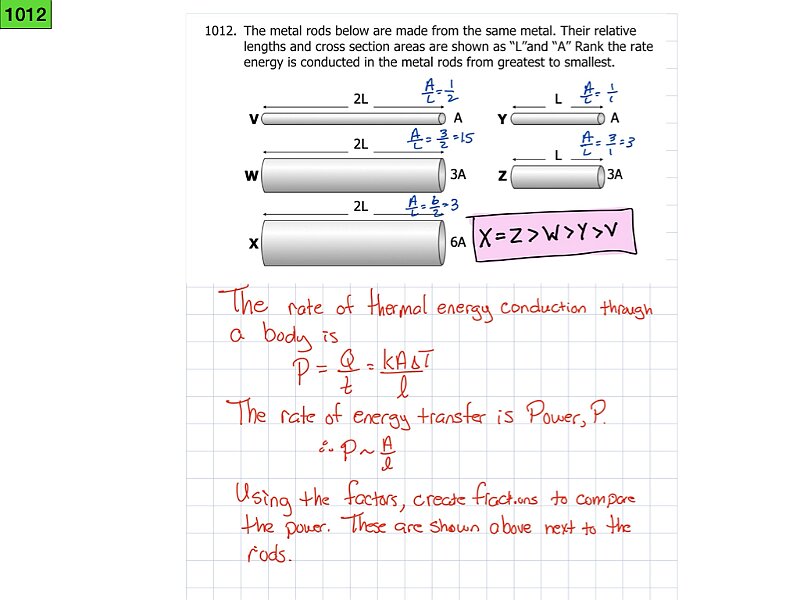 1012
1012. The metal rods below are made from the same metal. Their relative
lengths and cross section areas are shown as “L”and “A” Rank the rate
energy is conducted in the metal rods from greatest to smallest.
2L A/L = 1/2
V A
L A/L = 1/1
Y A
2L A/L = 3/2 = 15
W 3A
L A/L = 3/1 = 3
Z 3A
2L A/L = 6/2 = 3
X 6A
X = Z > W > Y > V
The rate of thermal energy conduction through
a body is
P = Q/t = kAΔT/l
The rate of energy transfer is Power, P.
∴ P ~ A/l
Using the factors, create fractions to compare
the power. These are shown above next to the
rods.